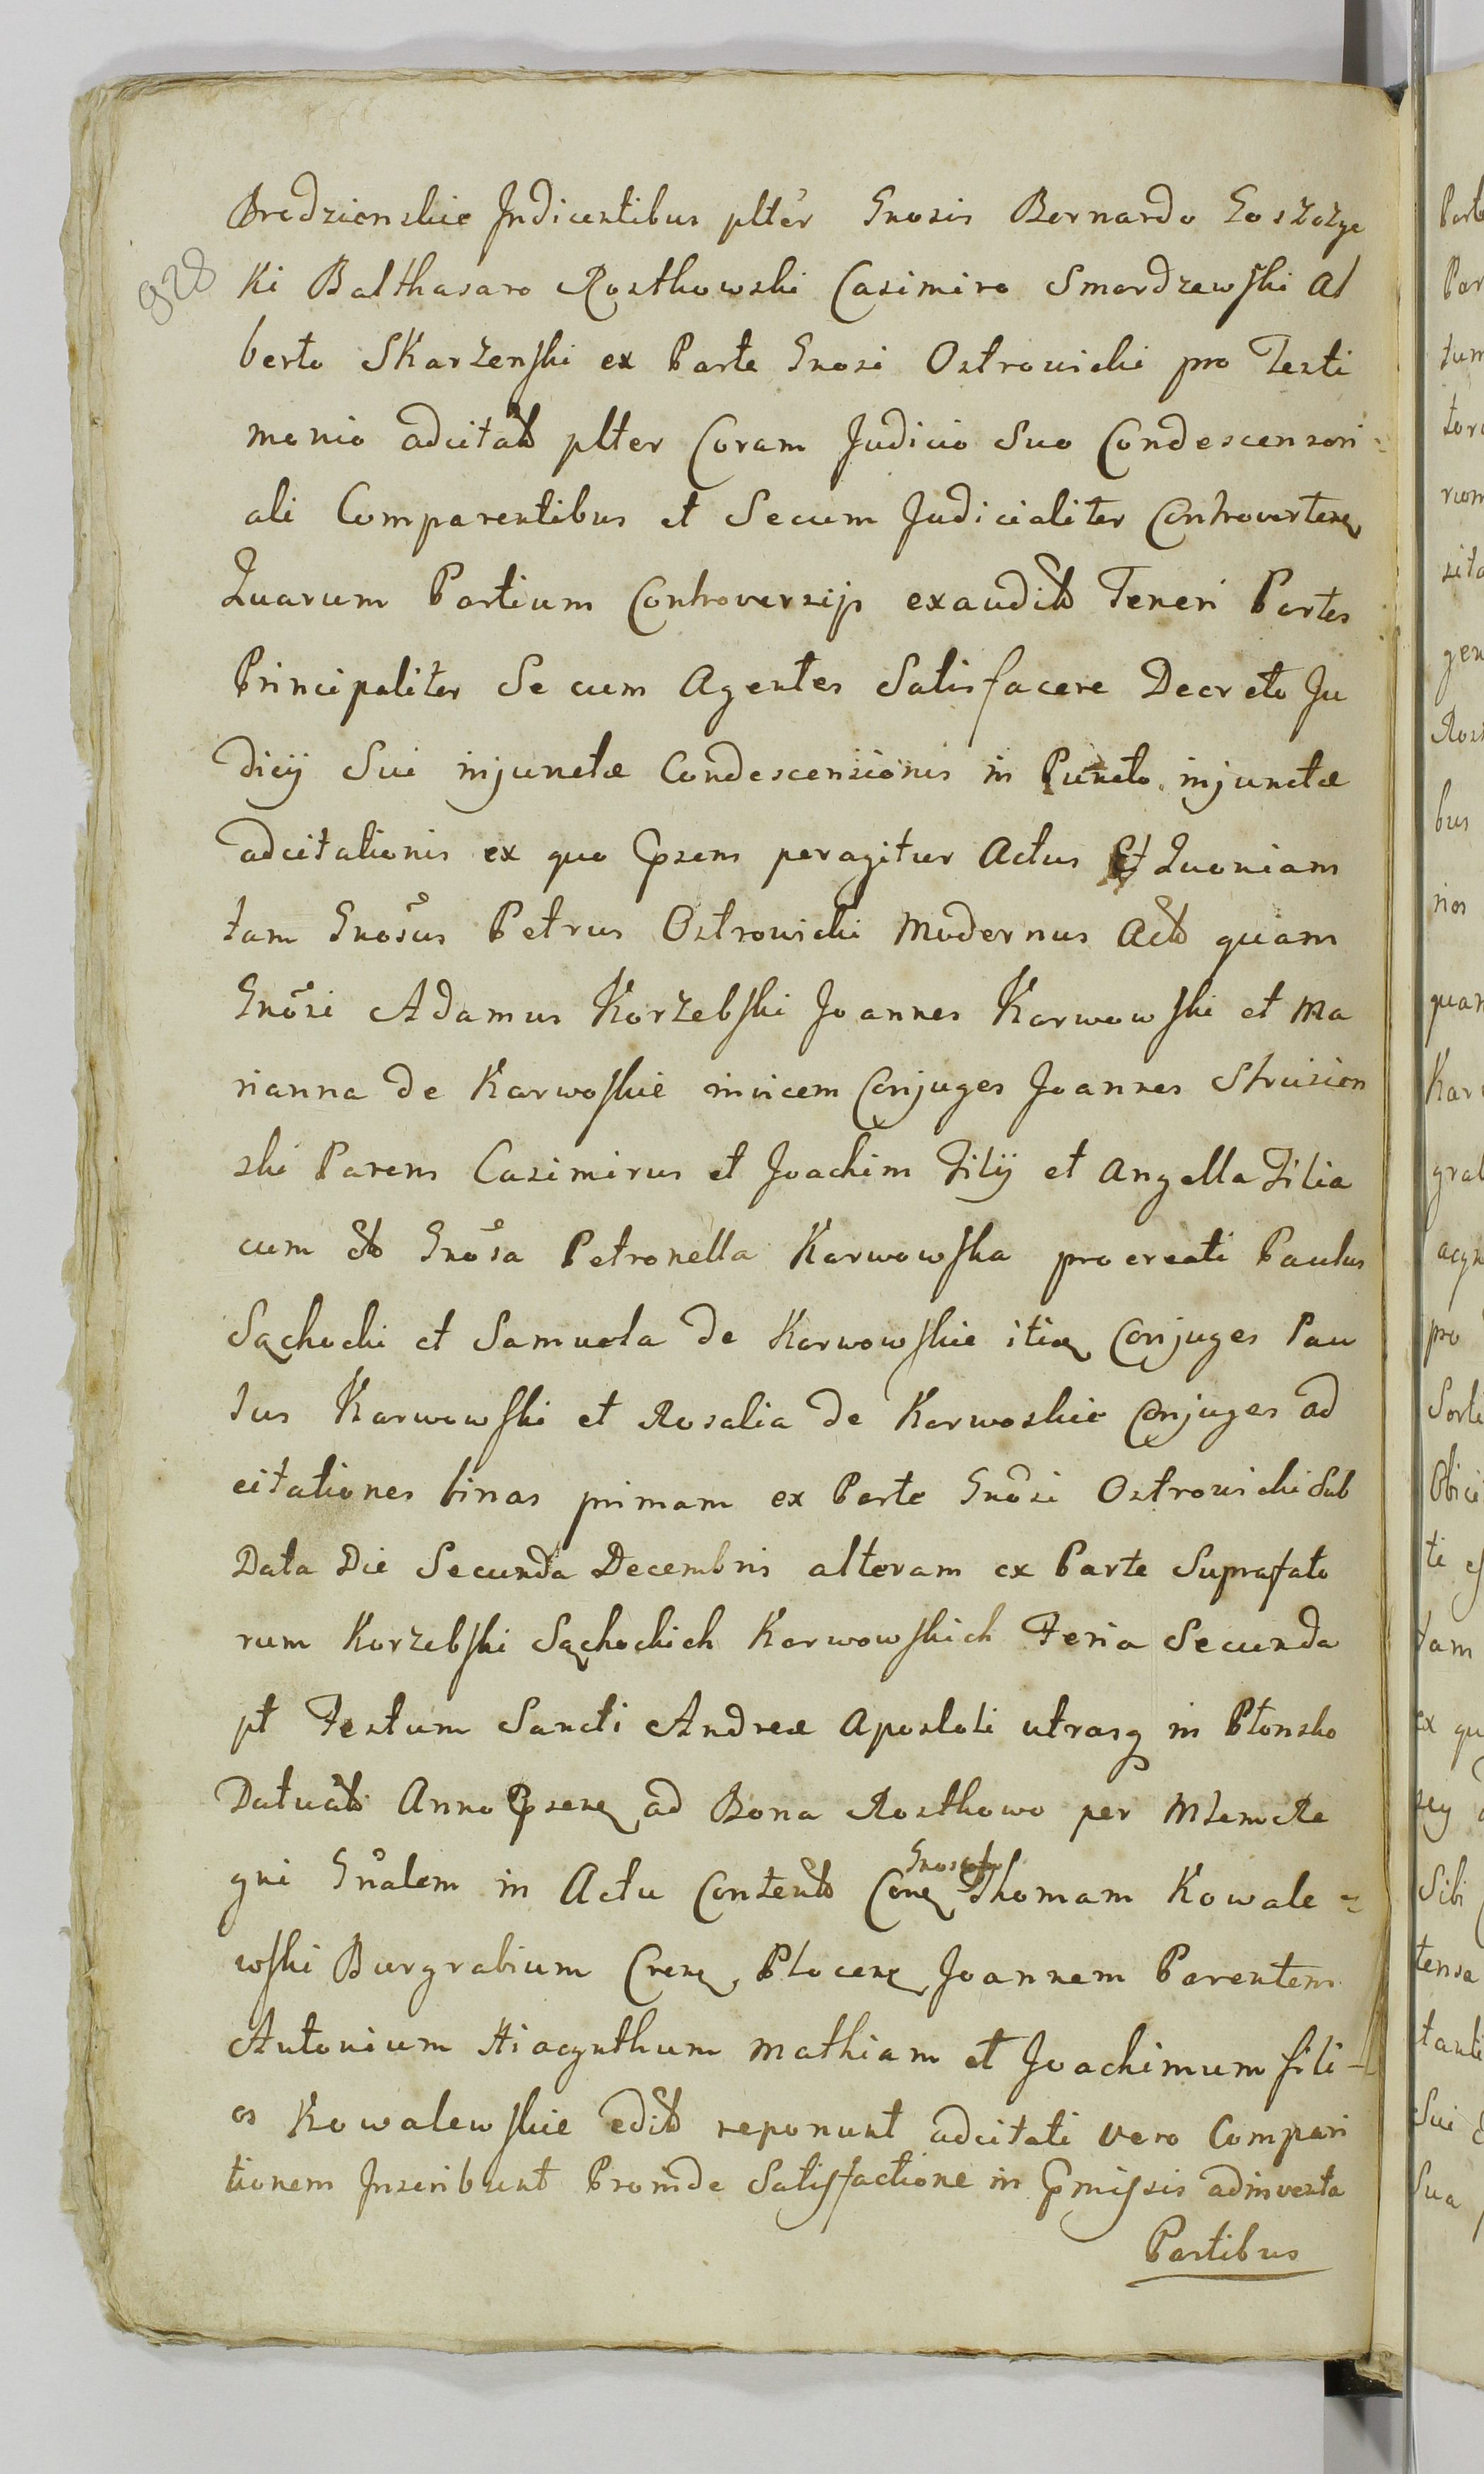 Bredzienskie Indicentibus plter Gnosis Bernardo Goszczyc
ki Balthasaro Rostkowski Casimiro Smardzewski Al
berto Skarzenski ex Parte Gnosi Ostrowicki pro Testi
monio adcitatis plter Coram Judicio Suo Condescensori=
ali Comparentibus et Secum Judicialiter Controverten
Quarum Partium Controversijs exauditis Teneri Partes
Principaliter Secum Agentes Satisfacere Decreto Ju
dicij Sui injunctæ Condescensionis in Puncto injunctæ
adcitationis ex quo Ppsens peragitur Actus Et Quoniam
tam Gnosus Petrus Ostrowicki Modernus Actor quam
Gnosi Adamus Korzebski Joannes Karwowski et Ma
rianna de Karwoskie invicem Conjuges Joannes Strusien
ski Parens Casimirus et Joachim Filij et Angella Filia
cum olim Gnosa Petronella Karwowska procreati Paulus
Sąchocki et Samuela de Karwowskie itidem Conjuges Pau
lus Karwowski et Rosalia de Karwoskie Conjuges ad
citationes binas primam ex Parte Gnosi Ostrowicki Sub
Data Die Secunda Decembris alteram ex Parte Suprafato
rum Korzebski Sąchockich Karwowskich Feria Secunda
pt Festum Sancti Andreæ Apostoli utrasq in Płonsko
Datuatis Anno Ppsen ad Bona Rostkowo per Mlem Re
gni Gnalem in Actu Contentis Con Gnosum Thomam Kowale=
wski Burgrabium Cren Plocen Joannem Parentem
Antonium Hiacynthum Mathiam et Joachimum fili-
os Kowalewskie editis reponunt adcitati vero Compari
tionem Inscribunt Proinde Satisfactione in Ppmissis adinventa
Partibus
928